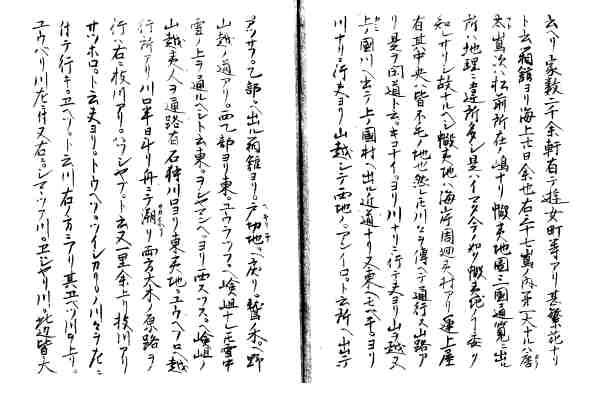 云ヘリ家数二千余軒有テ遊女町等アリ甚繁花ナリ
ト云箱館ヨリ海上七日余也右二十七嶌ノ内第一大ナルハ唐
太嶌次ハ松前所在ノ嶋ナリ 蝦夷地図三国通覧ニ出ル
所ハ地理ニ違所多シ是ハイマタ今ノ如ク蝦夷地ノ委ク
知レサリシ故ナルヘシ蝦夷地ハ海岸周廻夷村アリ運上屋
有其中央ハ皆不毛ノ地也然レ氏川々ヲ傳ヘテ通行ス山路ア
リ是ヲ間道ト云キコナイヨリ川ナリニ行テ夫ヨリ山ヲ越又
上ノ國川ヘ出テ上ノ國村ヘ出ル近道ナリ又東ヘモヘチヨリ
川ナリニ行夫ヨリ山越シテ西地ノアシイロト云所ヘ出テ
アツサフ乙部ヘ出ル箱館ヨリ戸切地ヘ戻リ鷲ノ木ヘ野
山越ノ道アリ西乙部ヨリ東ユウラツフヘ嶮岨ナレ氏雪中
雪ノ上ヲ通ルヘシト云東ヲシヤマンヘヨリ西スツヽヘ嶮岨ノ
山越夷人ヲ通路有石狩川口ヨリ東夷地ユウヘフロヘ越
行所アリ川口半日斗リ舟ニテ潮リ両方大木ノ原路ヲ
行ハ右ニ枝川アリハツシヤフト云又一里余上リ枝川アリ
サツホロト云夫ヨリトウヘツツイシカリノ川々ヲ左ニ
付テ行テヱヘツト云川右ノ方ニアリ其ヱヘツ川ヲ上リ
ユウベリ川左ニ付又右シママツフ川ヱシヤリ川此辺皆大